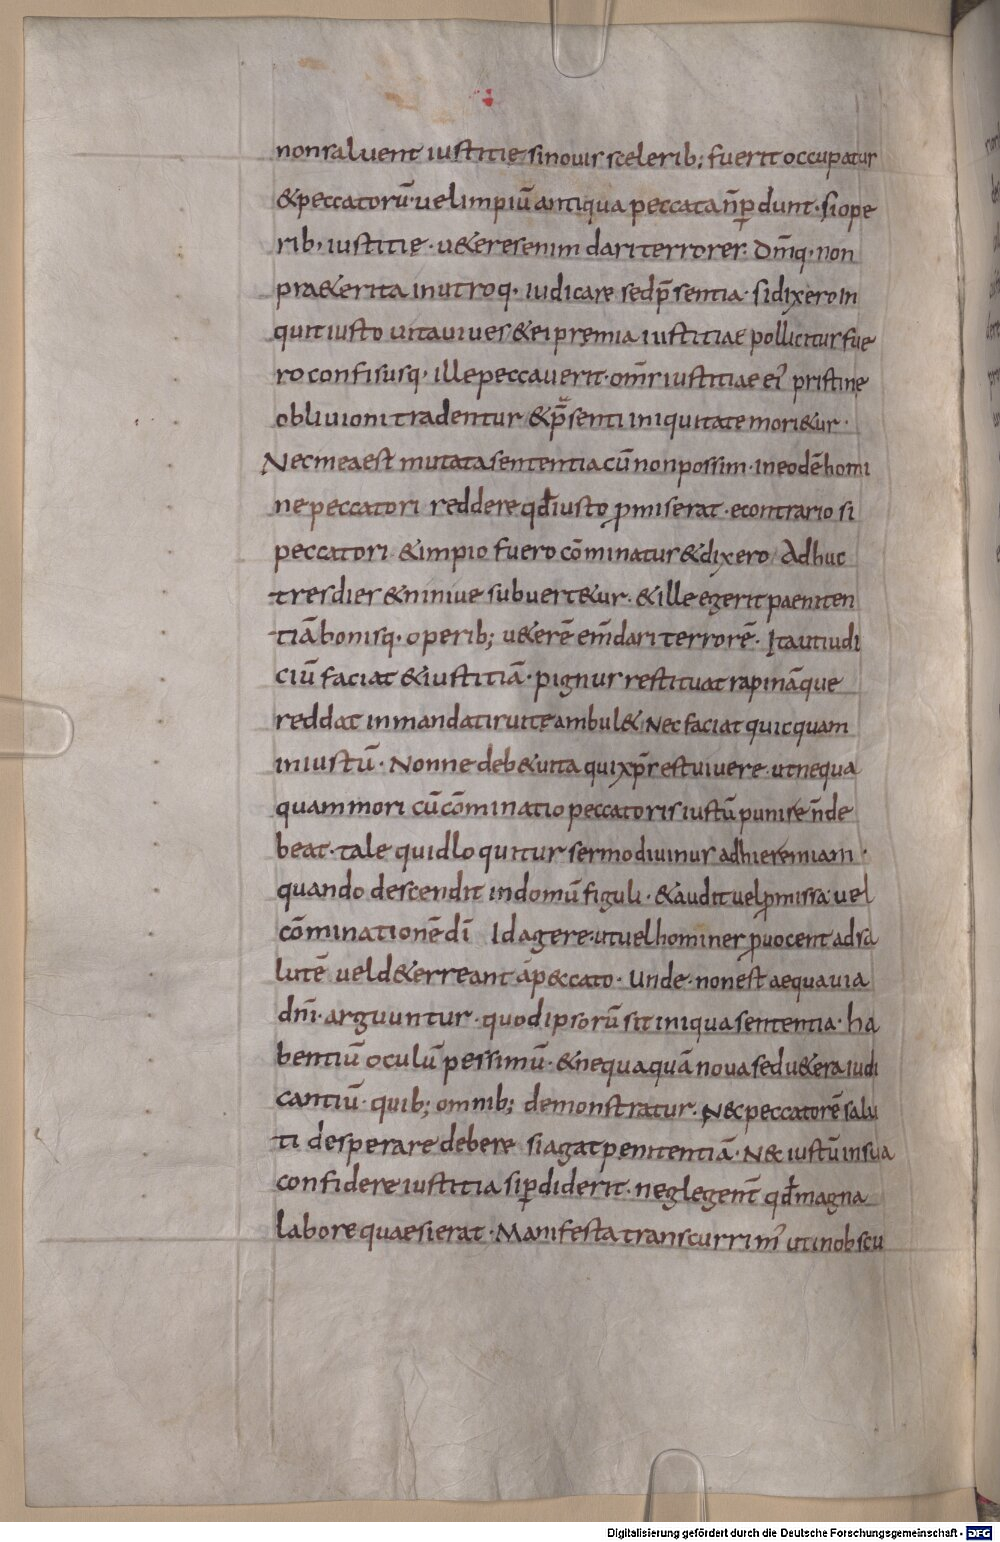 nonsaluent iustitię sinouis scelerib; fuerit occupatus
&peccatorū·uelimpiū antiqua peccata n̄ꝑdunt·siope
rib; iustitię·u&eresenim dariterrores. Dm̄q· non
pra&erita inutroq· iudicare sedp̄sentia· sidixeroin
quit iusto uitauiues &ei pręmia iustitiae pollicitusfue
ro confisusq· illepeccauerit·om̄s iustitiae ei᾽ pristinę
obliuioni tradentur &p̄senti iniquitate mori&ur·
Necmeaest mutatasententia cū nonpossim·ineodē homi
ne peccatori reddere qđ iusto ꝓmiserat·econtrario si
peccatori &impio fuero cōminatus &dixero Adhuc
tresdies &niniue subuert&ur·&ille egerit paeniten
tiā bonisq· operib; u&erē em̄dariterrorē· Itautiudi
ciū faciat &iustitiā·pignus restituat rapināque
reddat inmandatisuitę ambul& Nec faciat quicquam
iniustū· Nonne deb&uita quixp̄s est uiuere utnequa
quam mori cū cōminatio peccatoris iustū punire n̄de
beat·tale quidloquitur sermodiuinus adhieremiam·
quando descendit indomū figuli·&audit uelꝓmissa uel
cōminationē di᷍ Id agere·utuelhomines ꝓuocent adsa
lutē ueld&erreant ap&ccato· Unde·nonest aequauia
dn̄i·arguuntur·quodipsorū sit iniqua sententia·ha
bentiū oculū pessimū·&nequaquā noua sedu&era iudi
cantiū·quib; omnib; demonstratur. Necpeccatorē salu
ti desperare debere siagatpenitentiā· Ne iustū insua
confidere iustitia siꝑdiderit·neglegent̄ qđ magna
labore quaesierat· Manifesta transcurrim᾽ utinobscu
Digitalisierung gefördert durch die Deutsche Forschungsgemeinschaft · DFG